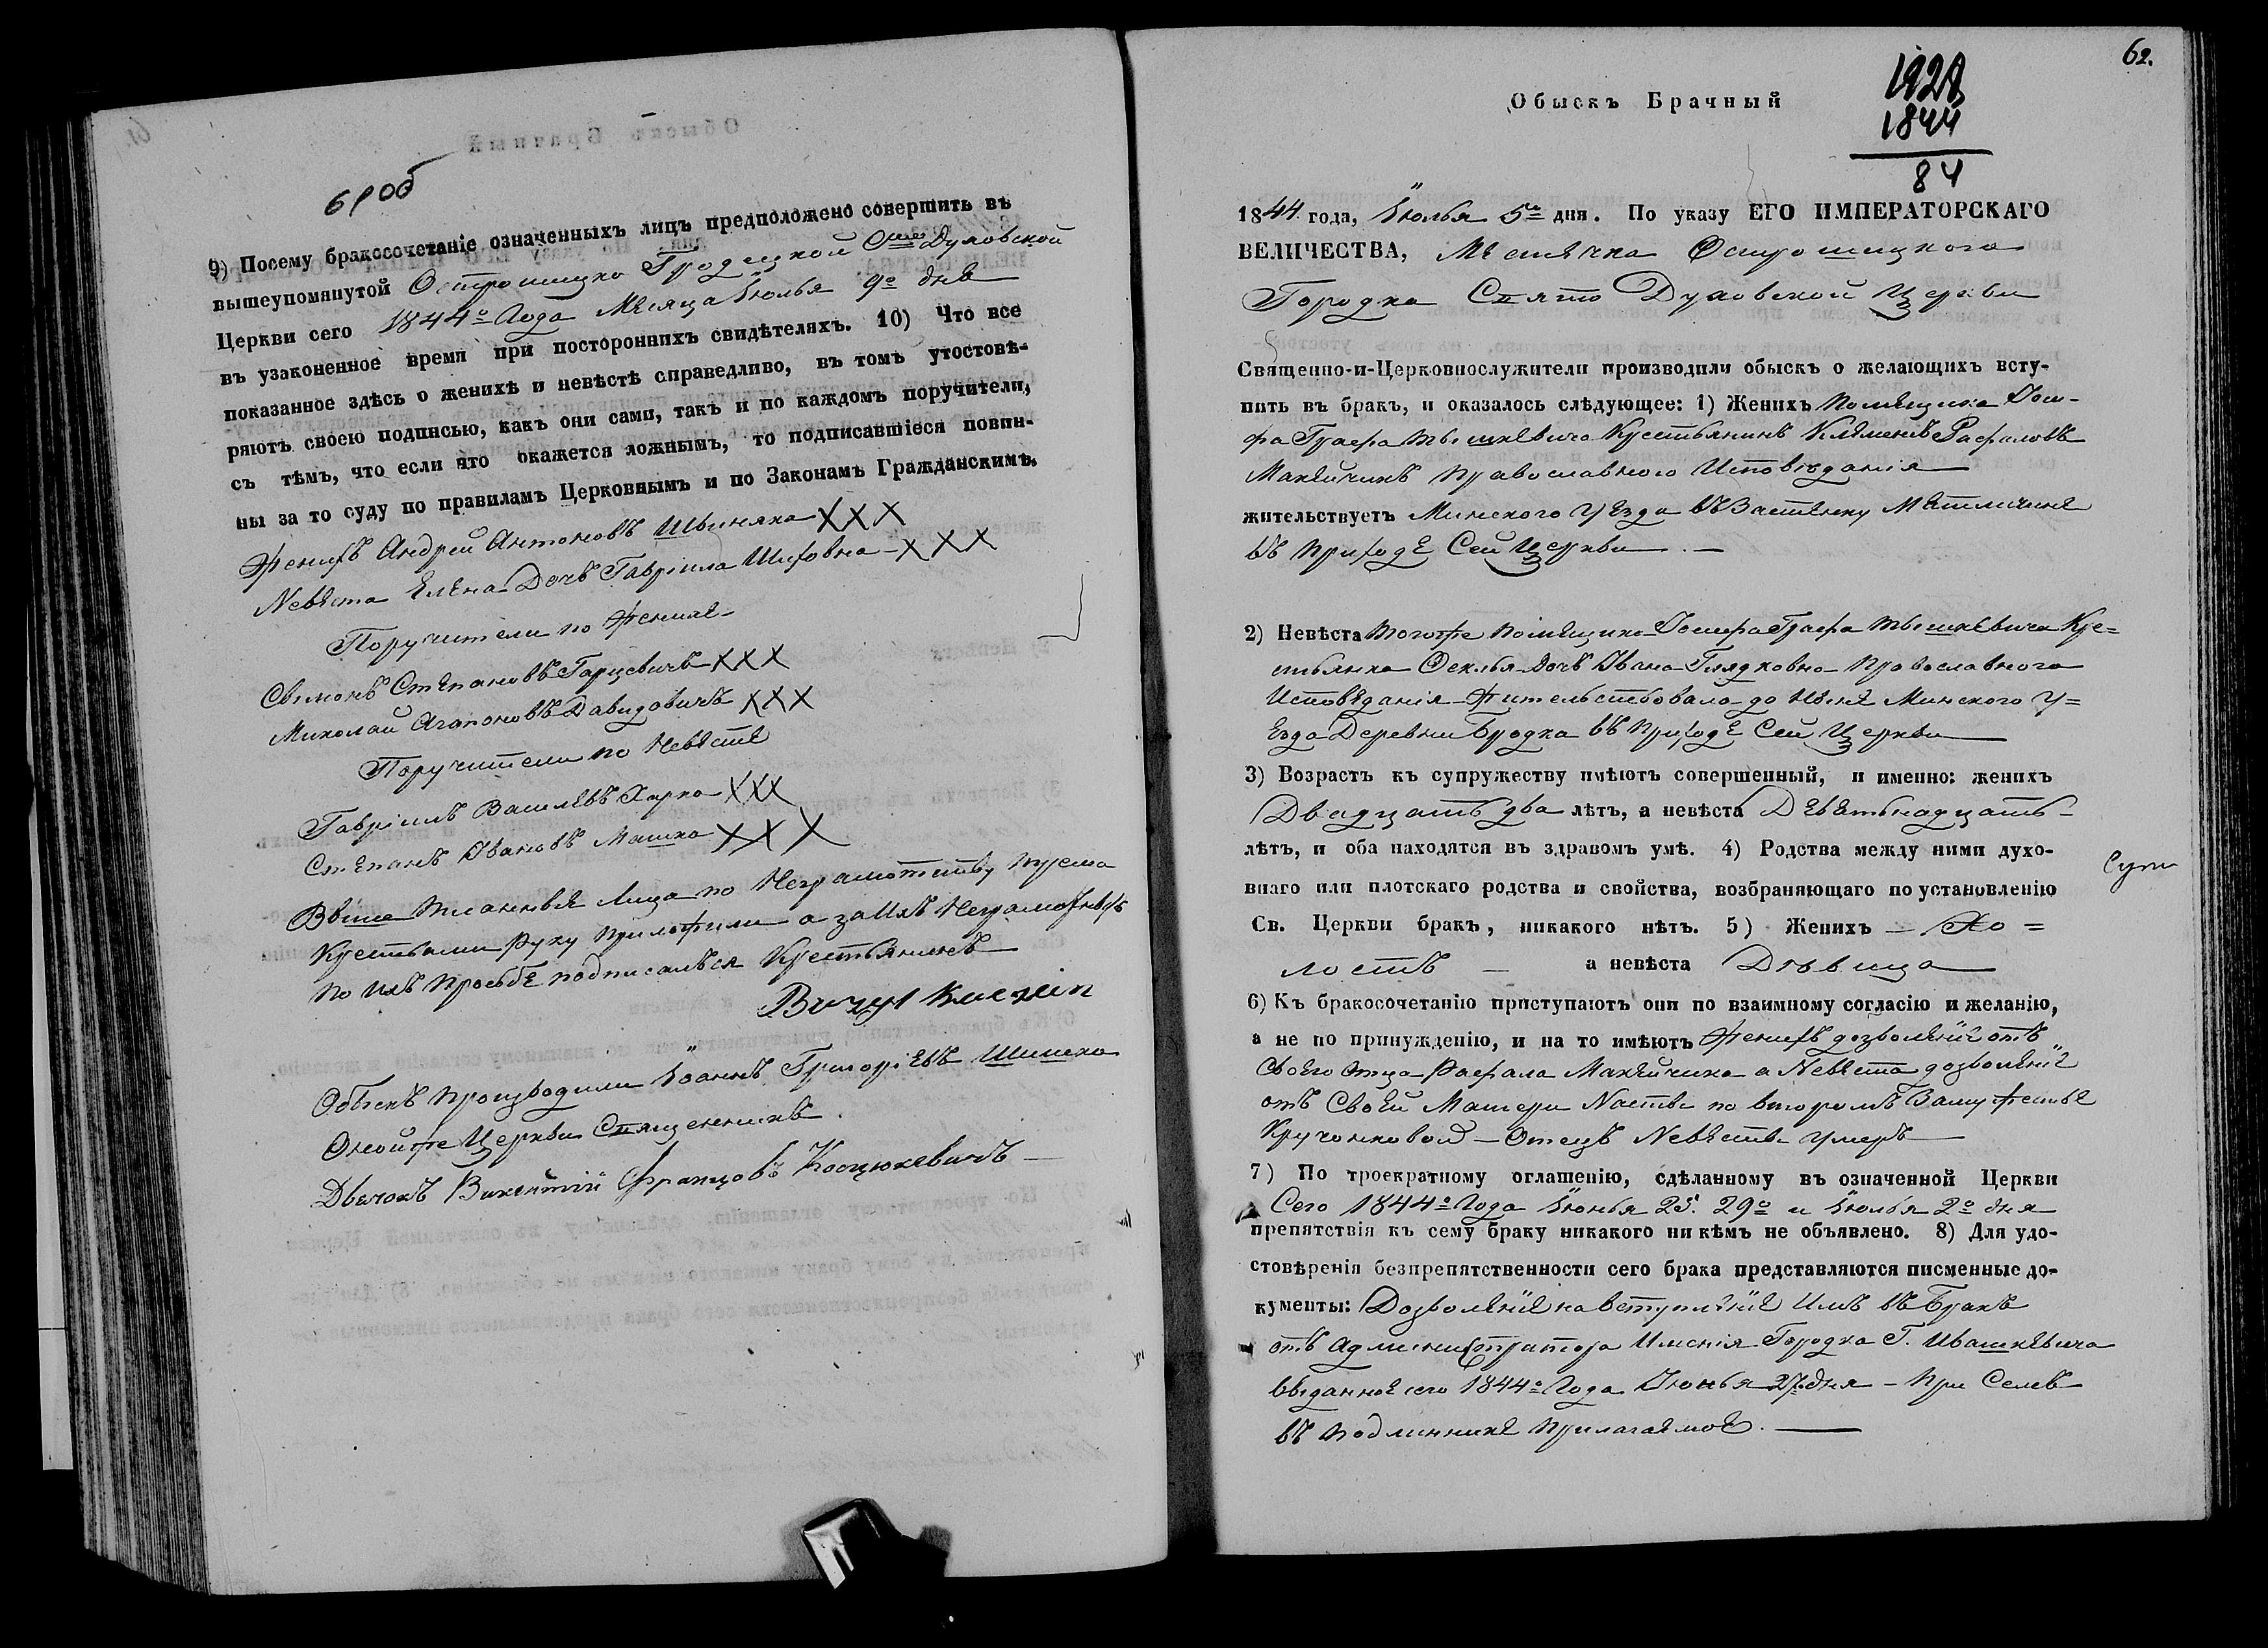 61 об
9) Посему бракосочетаніе означенныхъ лицъ предположено совершить въ
вышеупомянутой Острошицко Гродецкой Духовской
Церкви сего 1844º Года Месяца Іюлья 9º дня
въ узаконенное время при постороннихъ свидѣтеляхъ. 10) Что все
показанное здѣсь о женихѣ и невѣстѣ справедливо, въ томъ утостовѣ-
ряютъ своею подписью, какъ они сами, такъ и по каждомъ поручители,
съ тѣмъ, что если что окажется ложнымъ, то подписавшіеся повин-
ны за то суду по правиламъ Церковнымъ и по Законамъ Гражданскимъ.
Женихъ Андрей Антоновъ Швиняка XXX
Невѣста Елѣна Дочь Гавріила Шиховна XXX
Поручители по Женихѣ
Сѣмонъ Стѣпановъ Гарцевичъ XXX
Миколай Агапоновъ Давидовичъ XXX
Поручители по Невѣстѣ
Гавріилъ Василѣвъ Харка XXX
Стѣпанъ Ивановъ Машка XXX
Выше писанныя лица по Неграмотству трема
Крестами Руку приложили а за ихъ Неграмотныхъ
по ихъ прозбѣ подписалъся Крестьянинъ
Обыскъ производили Іоаннъ Григоріевъ Шишка
Онойже Церкви Священникъ
Дьячокъ Викентій Францовъ Костюкевичъ
62.
Обыскъ Брачный
1844
84
1844 года, Іюлья 5го дня. По указу ЕГО ИМПЕРАТОРСКАГО
ВЕЛИЧЕСТВА, Мѣстѣчка Острошицкого
Городка Свято Духовской Церкви
Священно-и-Церковнослужители производили обыскъ о желающихъ всту-
пить въ бракъ, и оказалось слѣдующее: 1) Женихъ Помѣщика Іоси-
фа Графа Тышкѣвича Крестьянинъ Клѣменъ Рафаловъ
Макѣйчикъ православного Исповѣданія
жительствуетъ Минского Уѣзда въ Застѣнку Мѣтличинѣ
въ приходѣ Сей Церкви
2) Невѣста тогоже помѣщика Іосифа Графа Тышкѣвича Кре=
стьянка Фѣклья Дочь Ивана Глядковна Православного
Исповѣданія Жительствовала до нынѣ Минского У=
ѣзда Деревни Бродка въ приходѣ Сей Церкви
3) Возрастъ къ супружеству имѣютъ совершенный, и именно: женихъ
Двадцать два лѣтъ, а невѣста Дѣвятьнадцать
лѣтъ, и оба находятся въ здравомъ умѣ. 4) Родства между ними духо-
внаго или плотскаго родства и свойства, возбраняющаго по установленію
Св. Церкви бракъ, никакого нѣтъ. 5) Женихъ – Хо=
лостъ – а невѣста Дѣвица
6) Къ бракосочетанію приступаютъ они по взаимному согласію и желанію,
а не по принужденію, и на то имѣютъ Женихъ дозволѣніе отъ
своего отца Рафала Макѣйчика а Невѣста дозволѣніе
отъ Своѣй Матери Насты по второмъ Замужествѣ
Кручонковой – Отецъ Невѣсты Умеръ
7) По троекратному оглашенію, сдѣланному въ означенной Церкви
Сего 1844º Года Іюнья 25. 29º и Іюлья 2º дня
препятствія къ сему браку никакого ни кѣмъ не объявлено. 8) Для удо-
стовѣренія безпрепятственности сего брака представляются писменные до-
кументы: Дозволѣніе на вступлѣніе имъ въ Бракъ
отъ Администратора Имѣнія Городка Г. Ивашкѣвича
выданноѣ сего 1844º Года Іюнья 27 дня – При Семъ
въ подлинникѣ прилагаѣмоѣ.